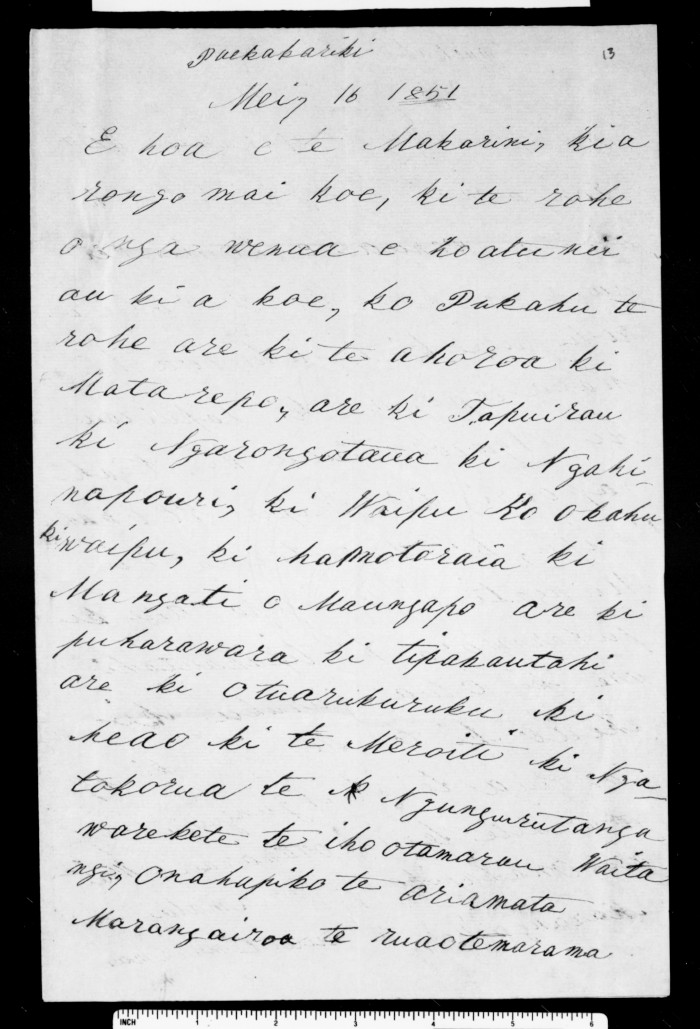 Paekakariki
13
Mei, 16 1851
E hoa e te Makarini, kia
rongo mai koe, ki te rohe
o nga wenua e hoatu nei
au ki a koe, ko Pukahu te
rohe are ki te ahoroa ki
Matarepe, are ki Tapuirau
ki Ngarongotaua ki Ngahi-
napouri, ki Waipu Ko okahu
ki waipu, ki hapmotoraia ki
Mangati o Maungapo are ki
puharawara ki tipakautahi
are ki otuarukuruku ki
heao ki te Meroiti ki Nga-
tokorua te Ngungurutanga
warekete te ihootamarau Waita
ngi, Onahapiko te ariamata
Marangairoa te ruaotemarama
INCH 1 2 3 4 5 6